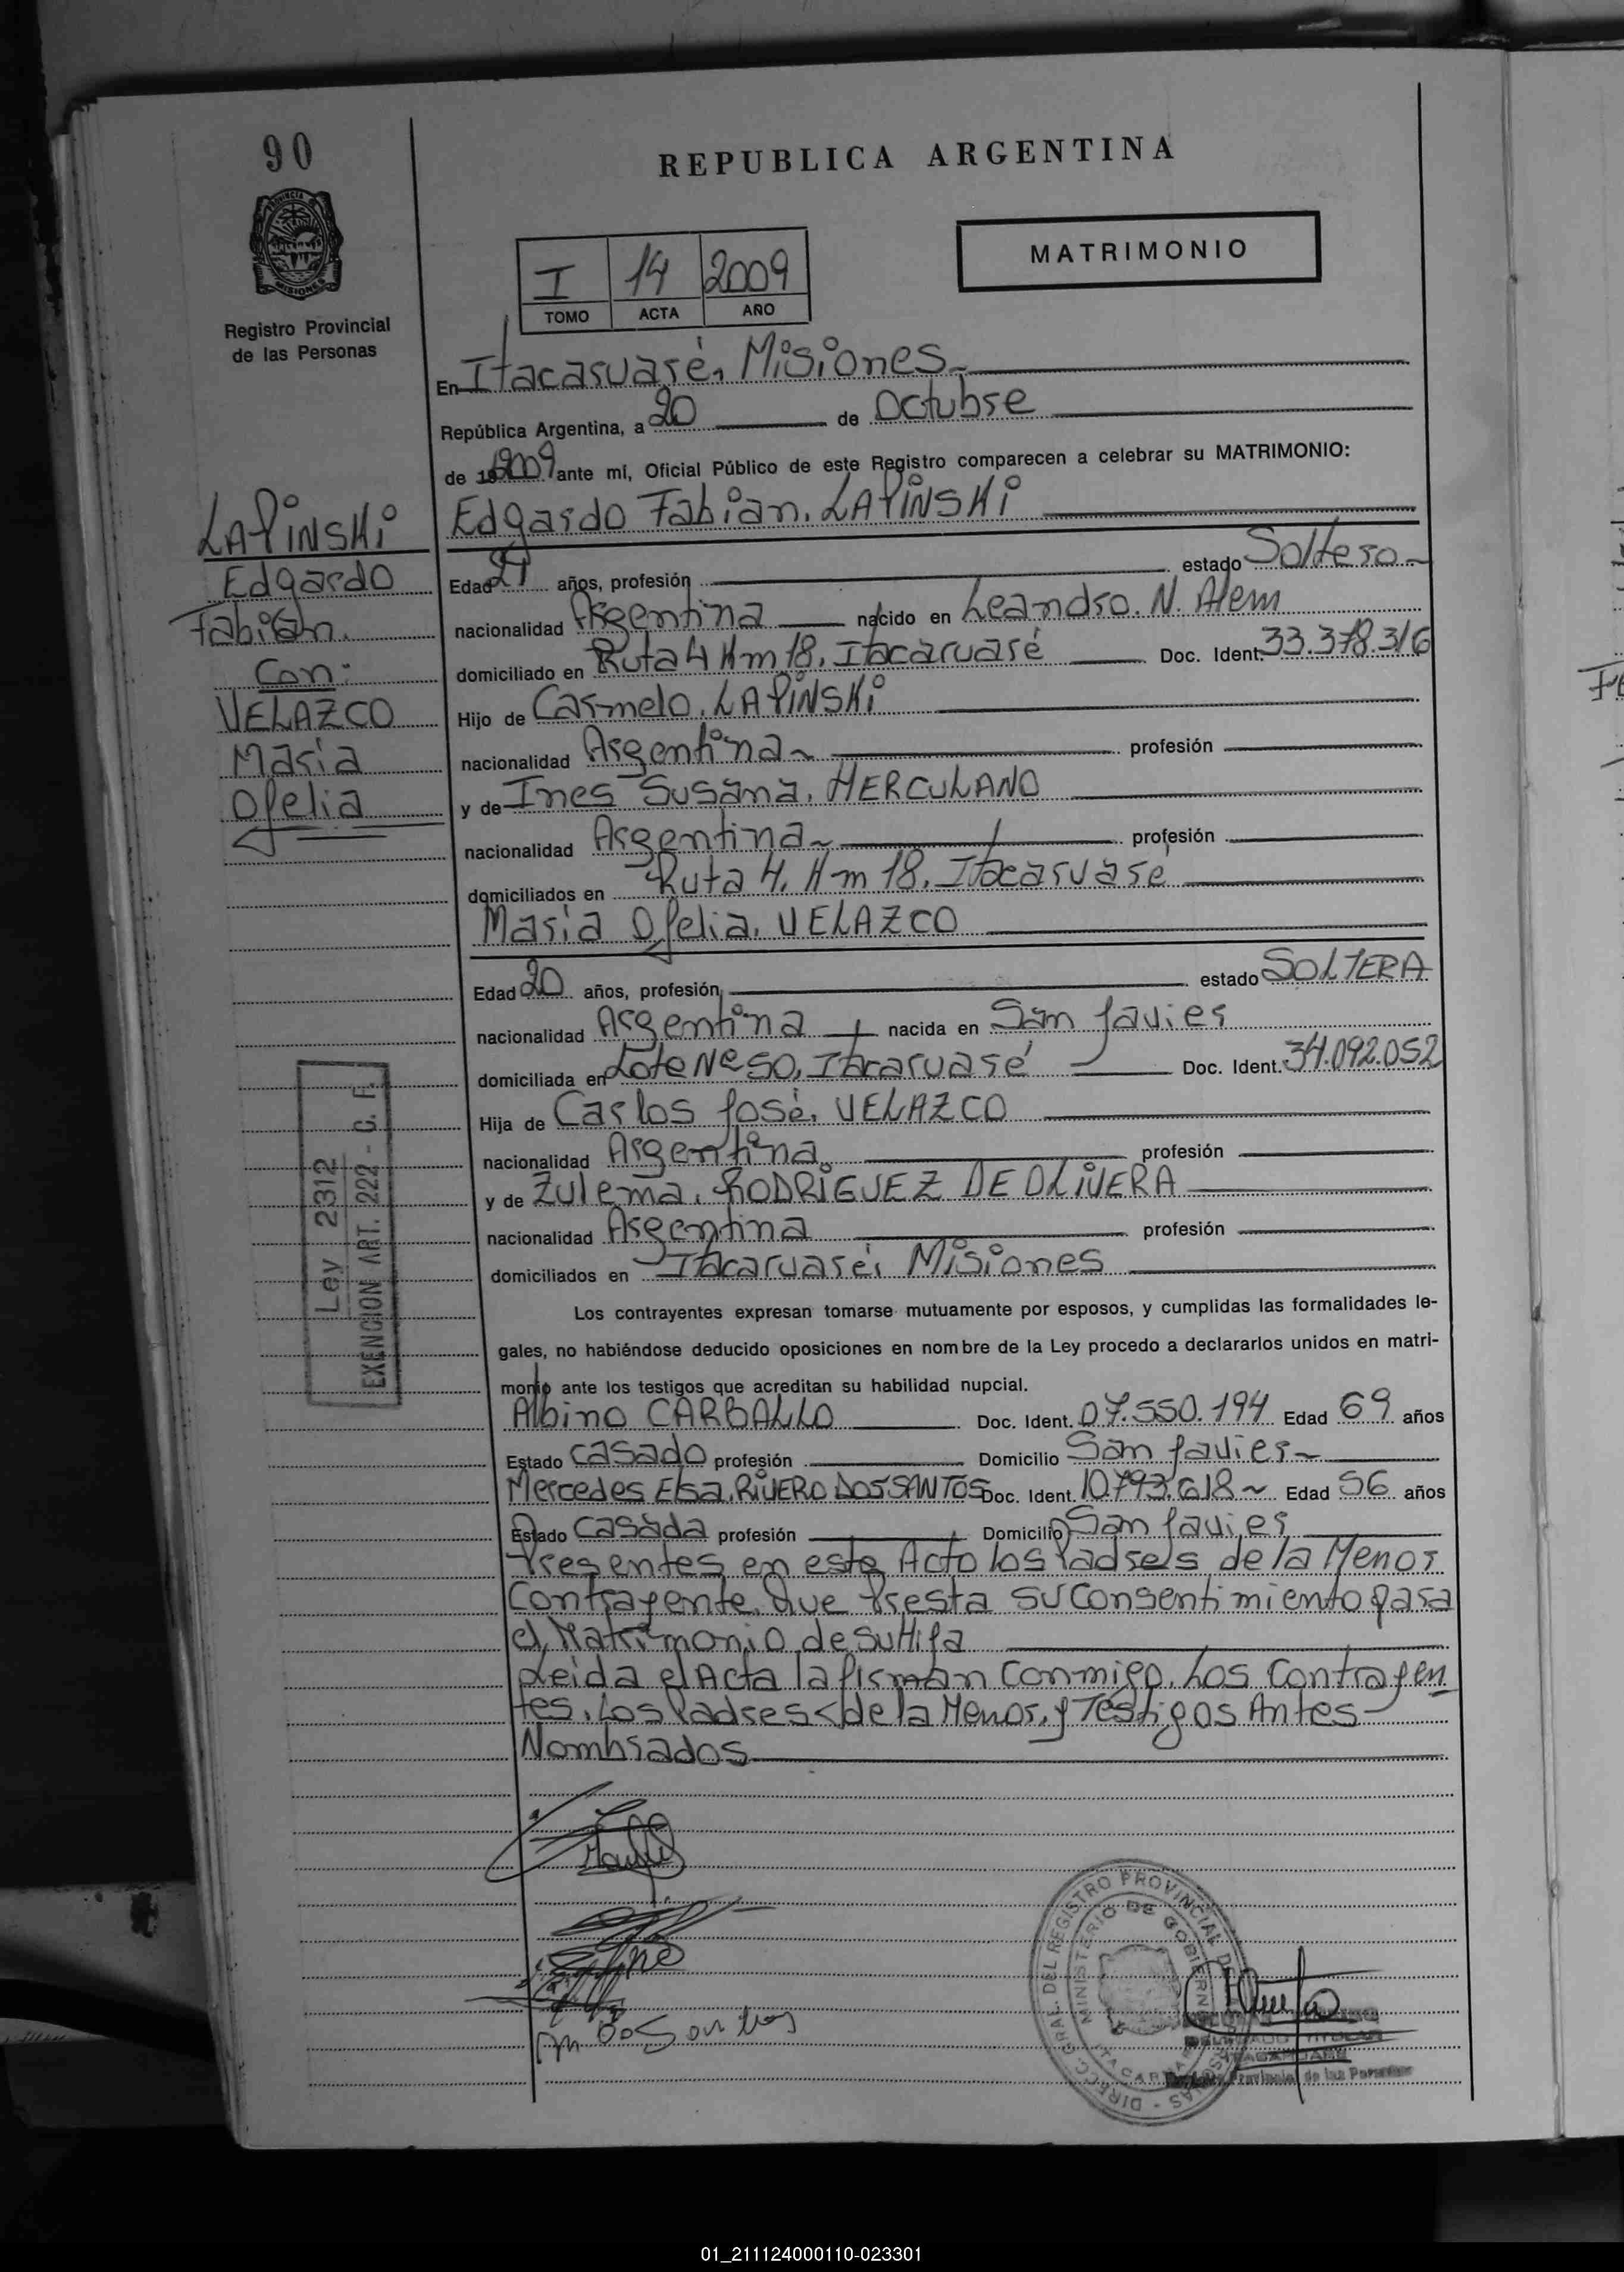 90
REPUBLICA ARGENTINA
PROVINCIA DE
MISIONES
Registro Provincial
de las Personas
MATRIMONIO
I 14 2009
TOMO ACTA AÑO
En Itacaruaré, Misiones
República Argentina, a 20 de Octubre
de 2009 ante mí, Oficial Público de este Registro comparecen a celebrar su MATRIMONIO:
Edgardo Fabian, LAPINSKI
LAPINSKI
Edgardo
Fabián.
Con:
VELAZCO
Maria
Ofelia
Edad 21 años, profesión estado Soltero
nacionalidad Argentina nacido en Leandro. N. Alem
domiciliado en Ruta 4 Km 18, Itacaruaré Doc. Ident. 33.378.316
Hijo de Carmelo, LAPINSKI
nacionalidad Argentina profesión
y de Ines Susana, HERCULANO
nacionalidad Argentina profesión
domiciliados en Ruta 4, Km 18, Itacaruaré
Maria Ofelia, VELAZCO
Edad 20 años, profesión estado SOLTERA
nacionalidad Argentina nacida en San Javier
domiciliada en Lote Nº 50, Itacaruaré Doc. Ident. 34.092.052
Hija de Carlos José, VELAZCO
nacionalidad Argentina profesión
y de Zulema, RODRIGUEZ DE OLIVERA
nacionalidad Argentina profesión
domiciliados en Itacaruaré, Misiones
Ley 2312
EXENCION ART. 222 - C. F.
Los contrayentes expresan tomarse mutuamente por esposos, y cumplidas las formalidades le-
gales, no habiéndose deducido oposiciones en nombre de la Ley procedo a declararlos unidos en matri-
monio ante los testigos que acreditan su habilidad nupcial.
Albino CARBALLO Doc. Ident. 07.550.194 Edad 69 años
Estado Casado profesión Domicilio San Javier
Mercedes Elsa, RIVERO DOS SANTOS Doc. Ident. 10.793.618 Edad 56 años
Estado Casada profesión Domicilio San Javier
Presentes en este Acto los Padres de la Menor
Contrayente, que Presta su Consentimiento para
el Matrimonio de su Hija
Leida el Acta la firman Conmigo, Los Contrayen
tes, Los Padres de la Menor, y Testigos Antes
Nombrados
DIRECC. GRAL. DEL REGISTRO PROVINCIAL DE
MINISTERIO DE GOBIERNO
Provincial de las Personas
01_211124000110-023301